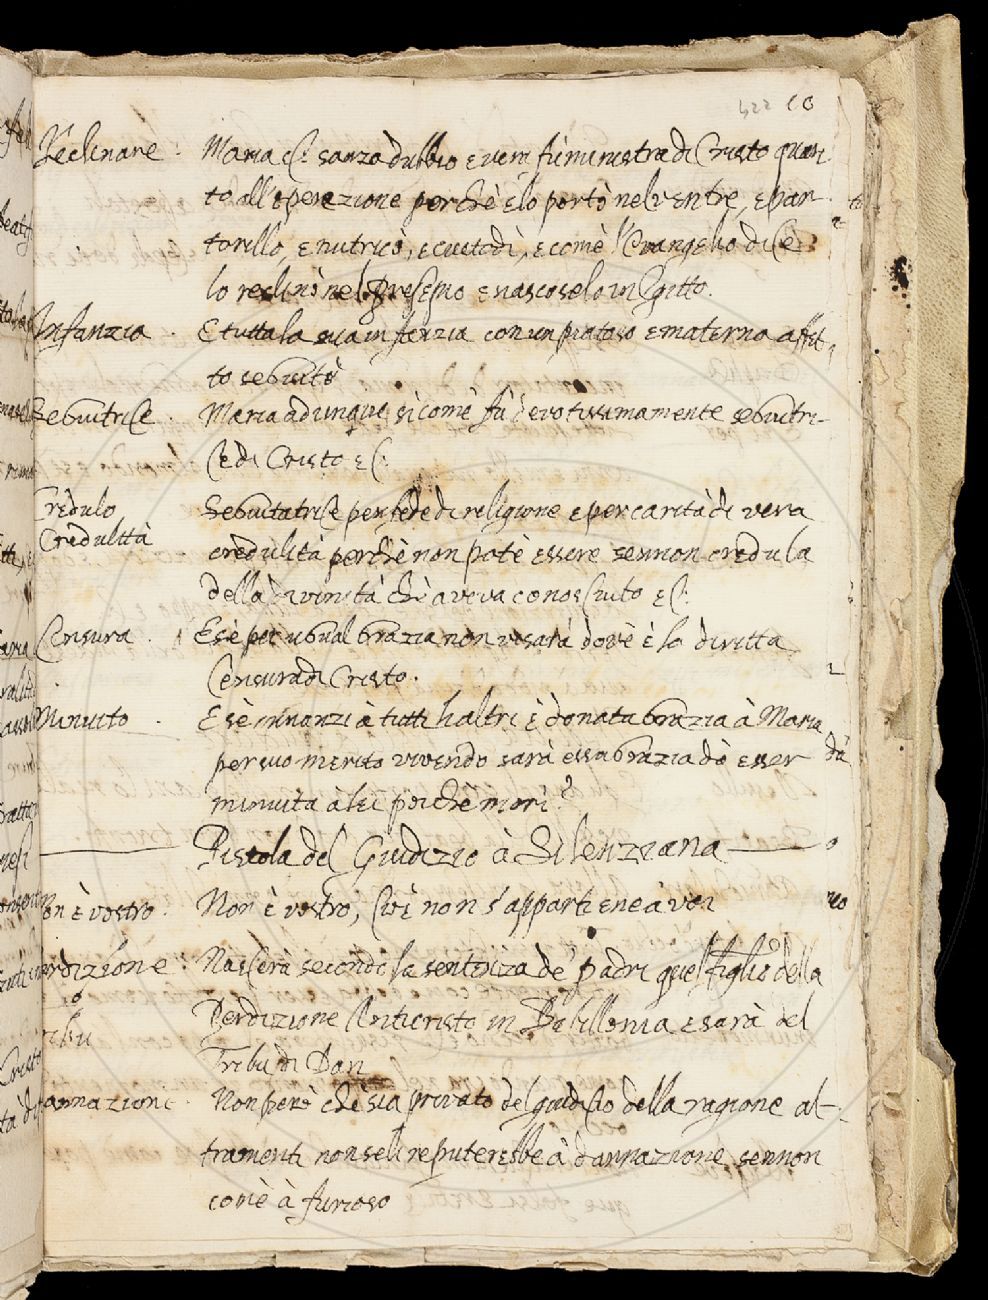 422 60
Reclinare. Maria è senza dubbio e vera fù ministra di Cristo quan-
to all'operazione perchè ella lo portò nel ventre, e par-
torillo, e nutricò, e custodì, e comè l'Evangelio dice
lo reclinò nel Presepio e nascoselo in Egitto.
Infanzia. E tutta la sua infanzia con un piatoso e materno affet-
to seguitò
Seguitrice. Maria adunque sì comè fù devotissimamente seguitri-
ce di Cristo ec:
Credulo Seguitatrice per fede di religione e per carità di vera
Credulità credulità perchè non potè essere sennon credula
della divinità chè aveva conosciuto ec:
Censura. E sè per ugual grazia non usata dovè è la diritta
Censura di Cristo.
Minuito. E sè innanzi à tutti l'altri è donata grazia à Maria
per suo merito vivendo sarà essa grazia dà esser
minuita à lei poiche morì?
Pistola del Giudizio à Silenziana
Non è vostro. Non è vostro, cioè non s'appartiene à voi
Perdizione. Nascerà secondo la sentenza de' padri quel figlio della
Perdizione Anticristo in Babillonia e sarà del
Tribu Tribu di Dan
Dannazione. Non però chè sia privato del giudicio della ragione al-
tramenti non seli reputerebbe à dannazione sennon
comè à furioso